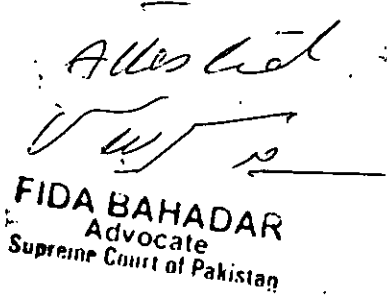 Attested
FIDA BAHADAR
Advocate
Supreme Court of Pakistan